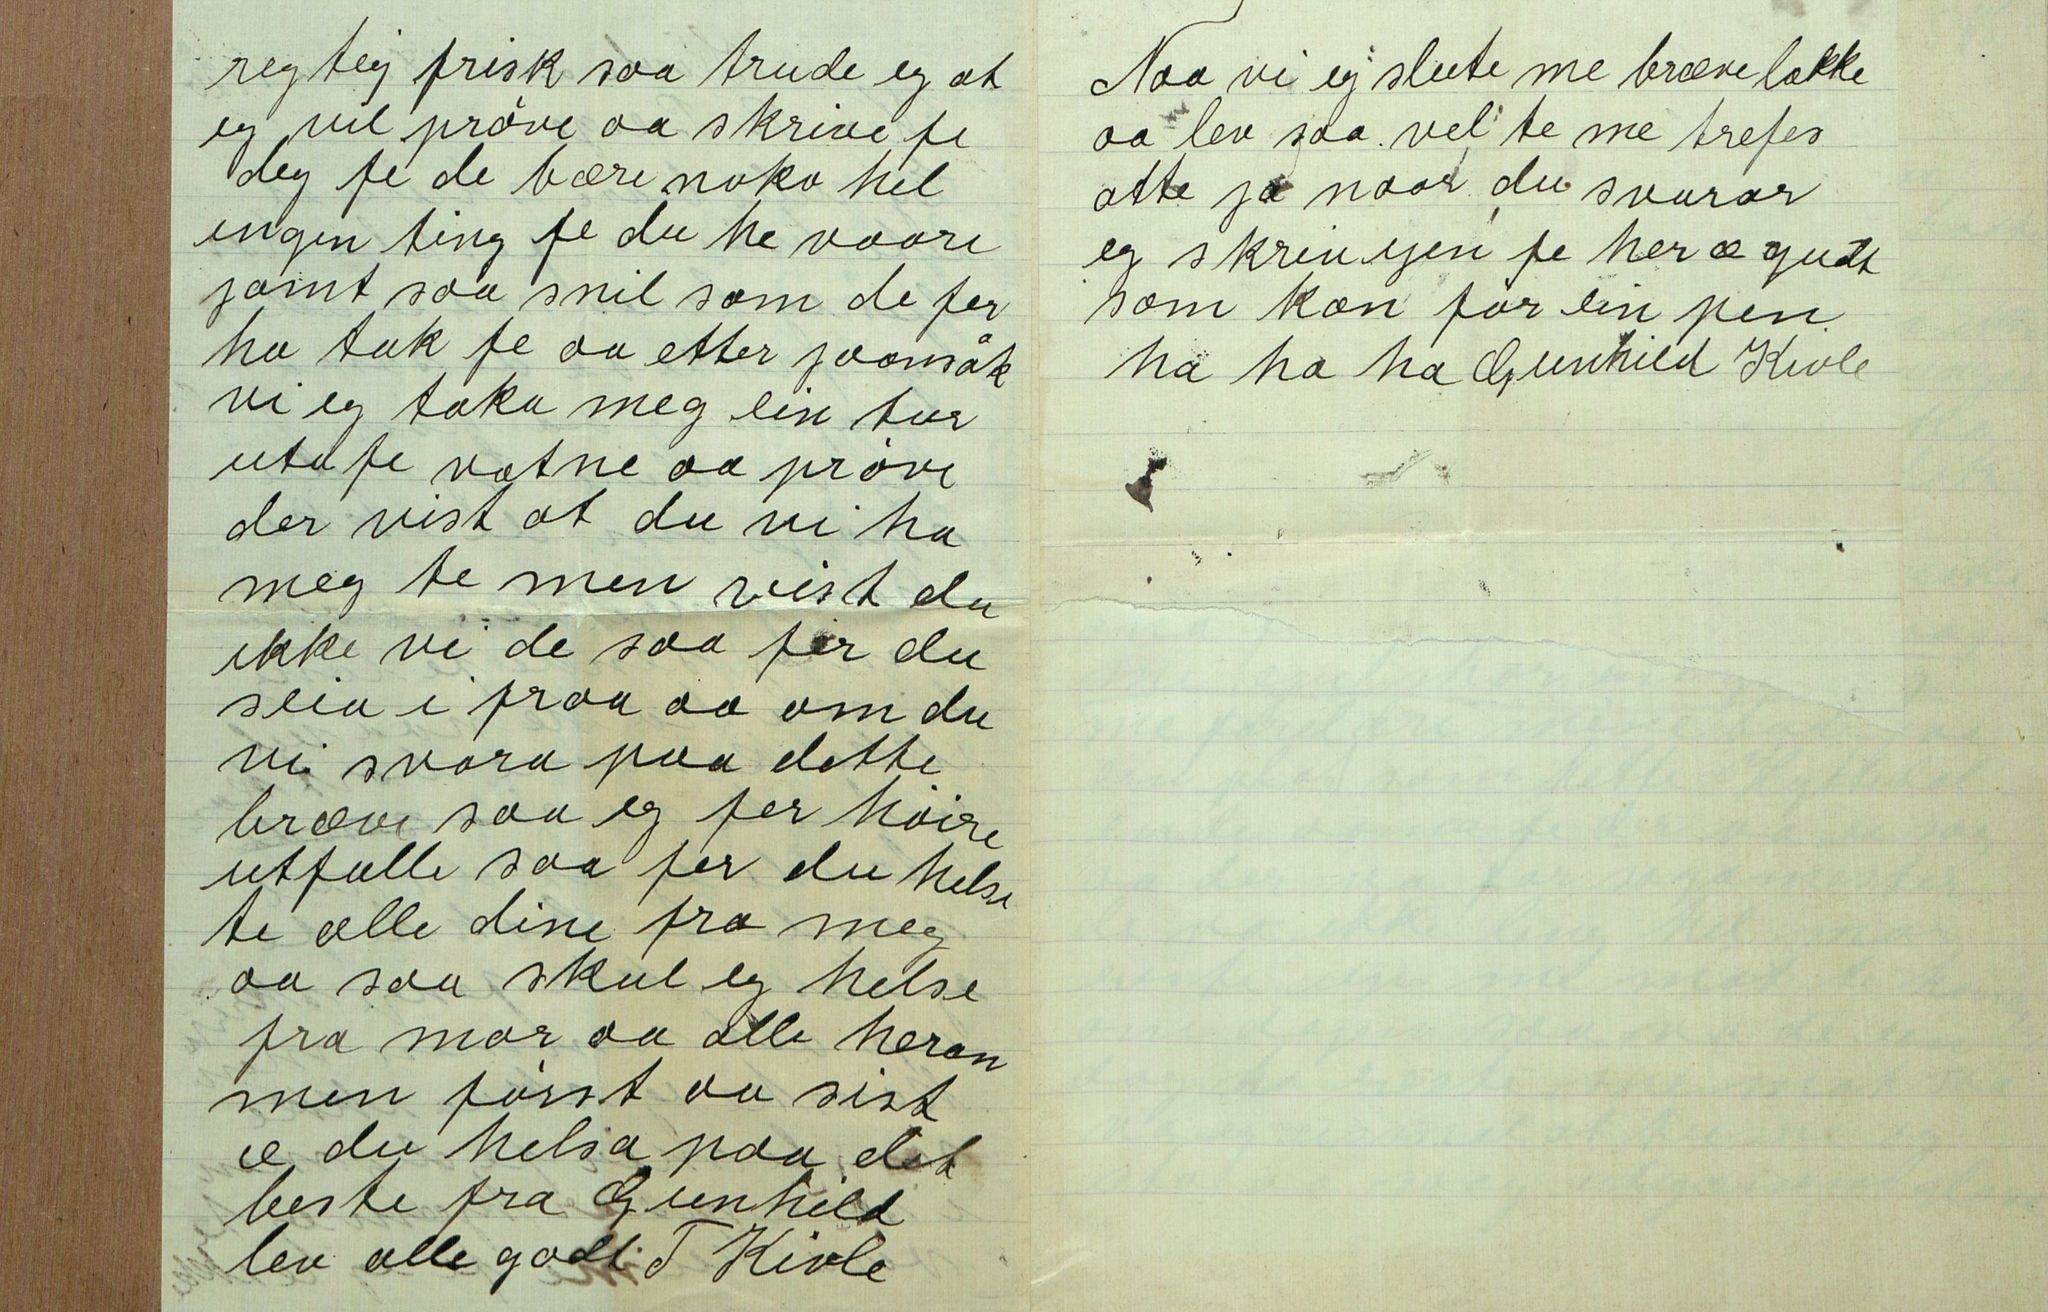 regteg frisk saa trude eg at
eg vil pröve aa skrive fe
deg fe de være noko hel
ingen ting fe du he vaare
jamt saa snil som de fer
ha tak fe aa etter joansåk
vi eg taka meg ein tur
uta fe vatne aa pröve
der vist at du vi ha
meg te men vist du
ikke vi de saa fer du
seia i fraa aa om du
vi svara paa dette
bræve saa eg fer höire
utfalle saa fer du helse
te alle dine fra meg
aa saa skul eg helse
fra mor aa alle heran
men först aa sist
æ du helsa paa det
beste fra Gunhild
lev alle godt T Kivle
Naa vi eg slute me bræve lakke
aa lev saa vel te me trefes
atte ja naar du svarar
eg skriv igen fe her æ gudt
som kan för ein pen
ha ha ha Gunhild Kivle